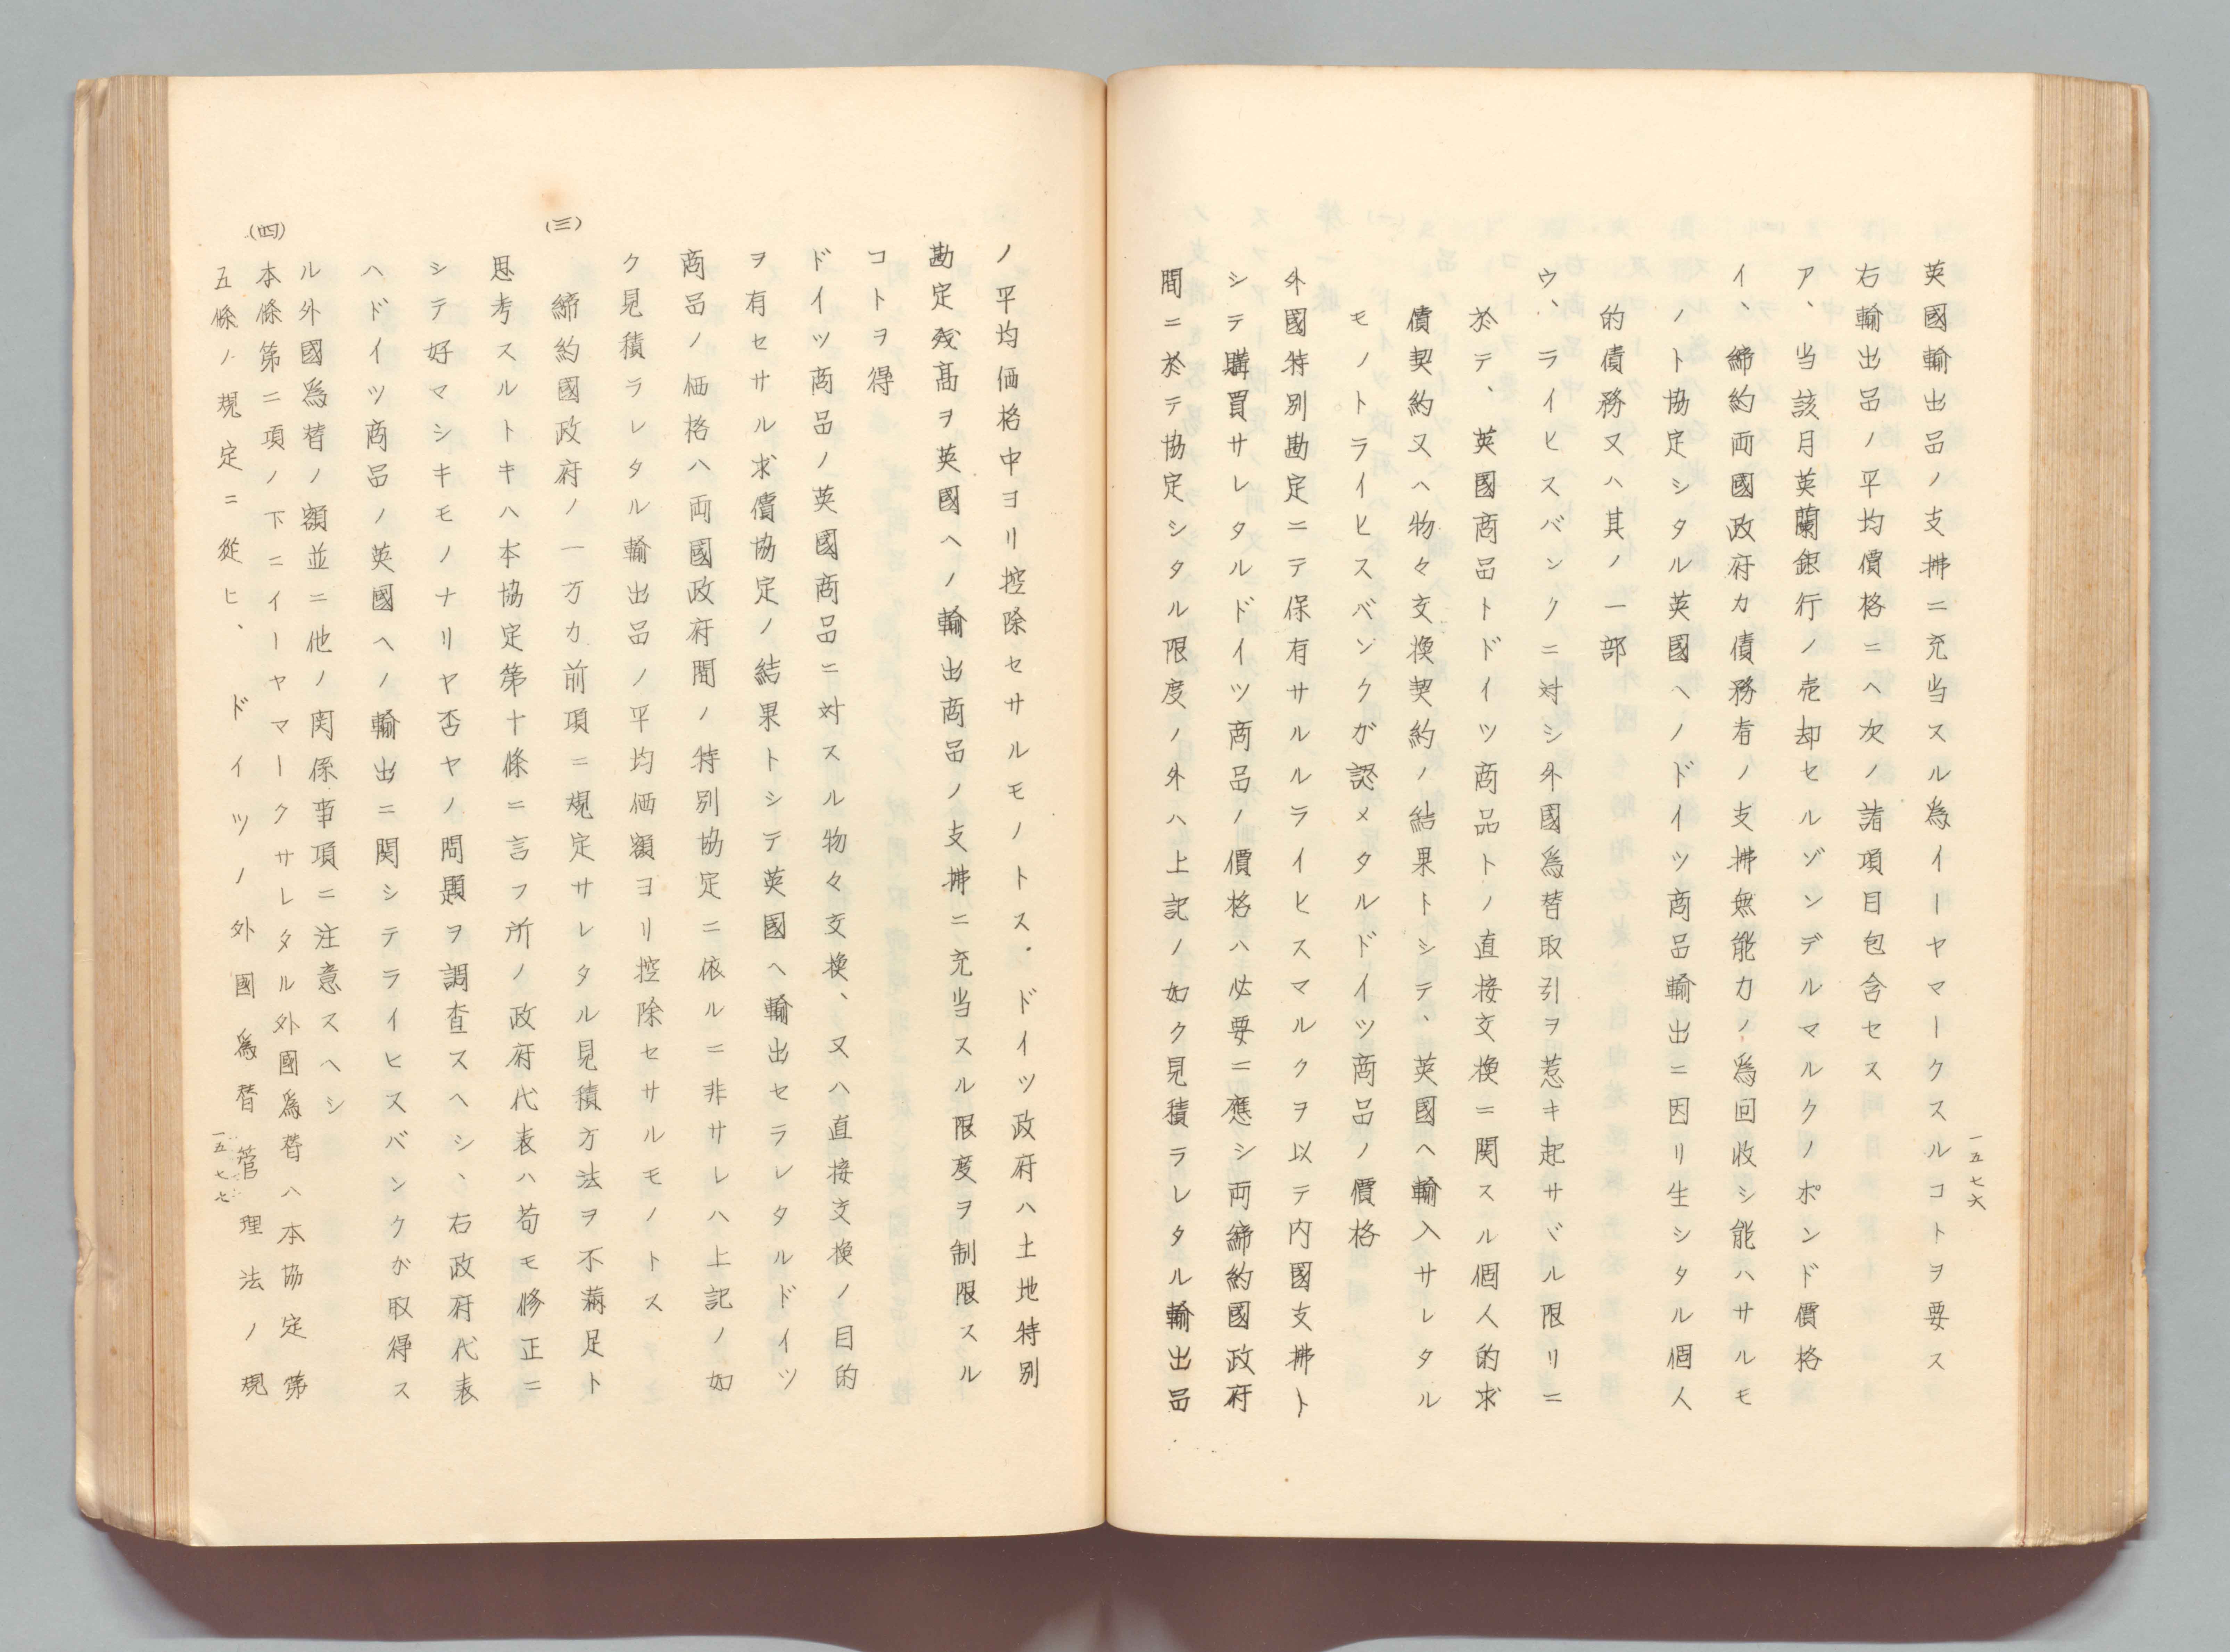 英國輸出品ノ支拂ニ充当スル為イーヤマークスルコトヲ要ス
右輸出品ノ平均價格ニヘ次ノ諸項目包含セス
ア、当該月英蘭銀行ノ売却セルゾンデルマルクノポンド價格
イ、締約両國政府カ債務者ノ支拂無能力ノ為回收シ能ハサルモ
ノト協定シタル英國ヘノドイツ商品輸出ニ因リ生シタル個人
的債務又ハ其ノ一部
ウ、ライヒスバンクニ対シ外國為替取引ヲ惹キ起サバル限リニ
於テ、英國商品トドイツ商品トノ直接交換ニ関スル個人的求
償契約又ヘ物々交換契約ノ結果トシテ、英國ヘ輸入サレタル
モノトライヒスバンクガ認メタルドイツ商品ノ價格
外國特別勘定ニテ保有サルルライヒスマルクヲ以テ内國支拂ト
シテ購買サレタルドイツ商品ノ價格ハ必要ニ應シ両締約國政府
間ニ於テ協定シタル限度ノ外ハ上記ノ如ク見積ラレタル輸出品
一五七六
ノ平均価格中ヨリ控除セサルモノトス.ドイツ政府ハ土地特別
勘定残高ヲ英國ヘノ輸出商品ノ支拂ニ充当スル限度ヲ制限スル
コトヲ得
ドイツ商品ノ英國商品ニ対スル物々交換、又ハ直接交換ノ目的
ヲ有セサル求償協定ノ結果トシテ英國ヘ輸出セラレタルドイツ
商品ノ価格ハ両國政府間ノ特別協定ニ依ルニ非サレハ上記ノ如
ク見積ラレタル輸出品ノ平均価額ヨリ控除セサルモノトス
(三)
締約國政府ノ一方カ前項ニ規定サレタル見積方法ヲ不満足ト
思考スルトキハ本協定第十條ニ言フ所ノ政府代表ハ苟モ修正ニ
シテ好マシキモノナリヤ否ヤノ問題ヲ調査スヘシ、右政府代表
ハドイツ商品ノ英國ヘノ輸出ニ関シテライヒスバンクが取得ス
ル外國為替ノ額並ニ他ノ関係事項ニ注意スヘシ
(四)
本條第二項ノ下ニイーヤマークサレタル外國為替ハ本協定第
五條ノ規定ニ從ヒ、ドイツノ外國為替管理法ノ規
一五七七